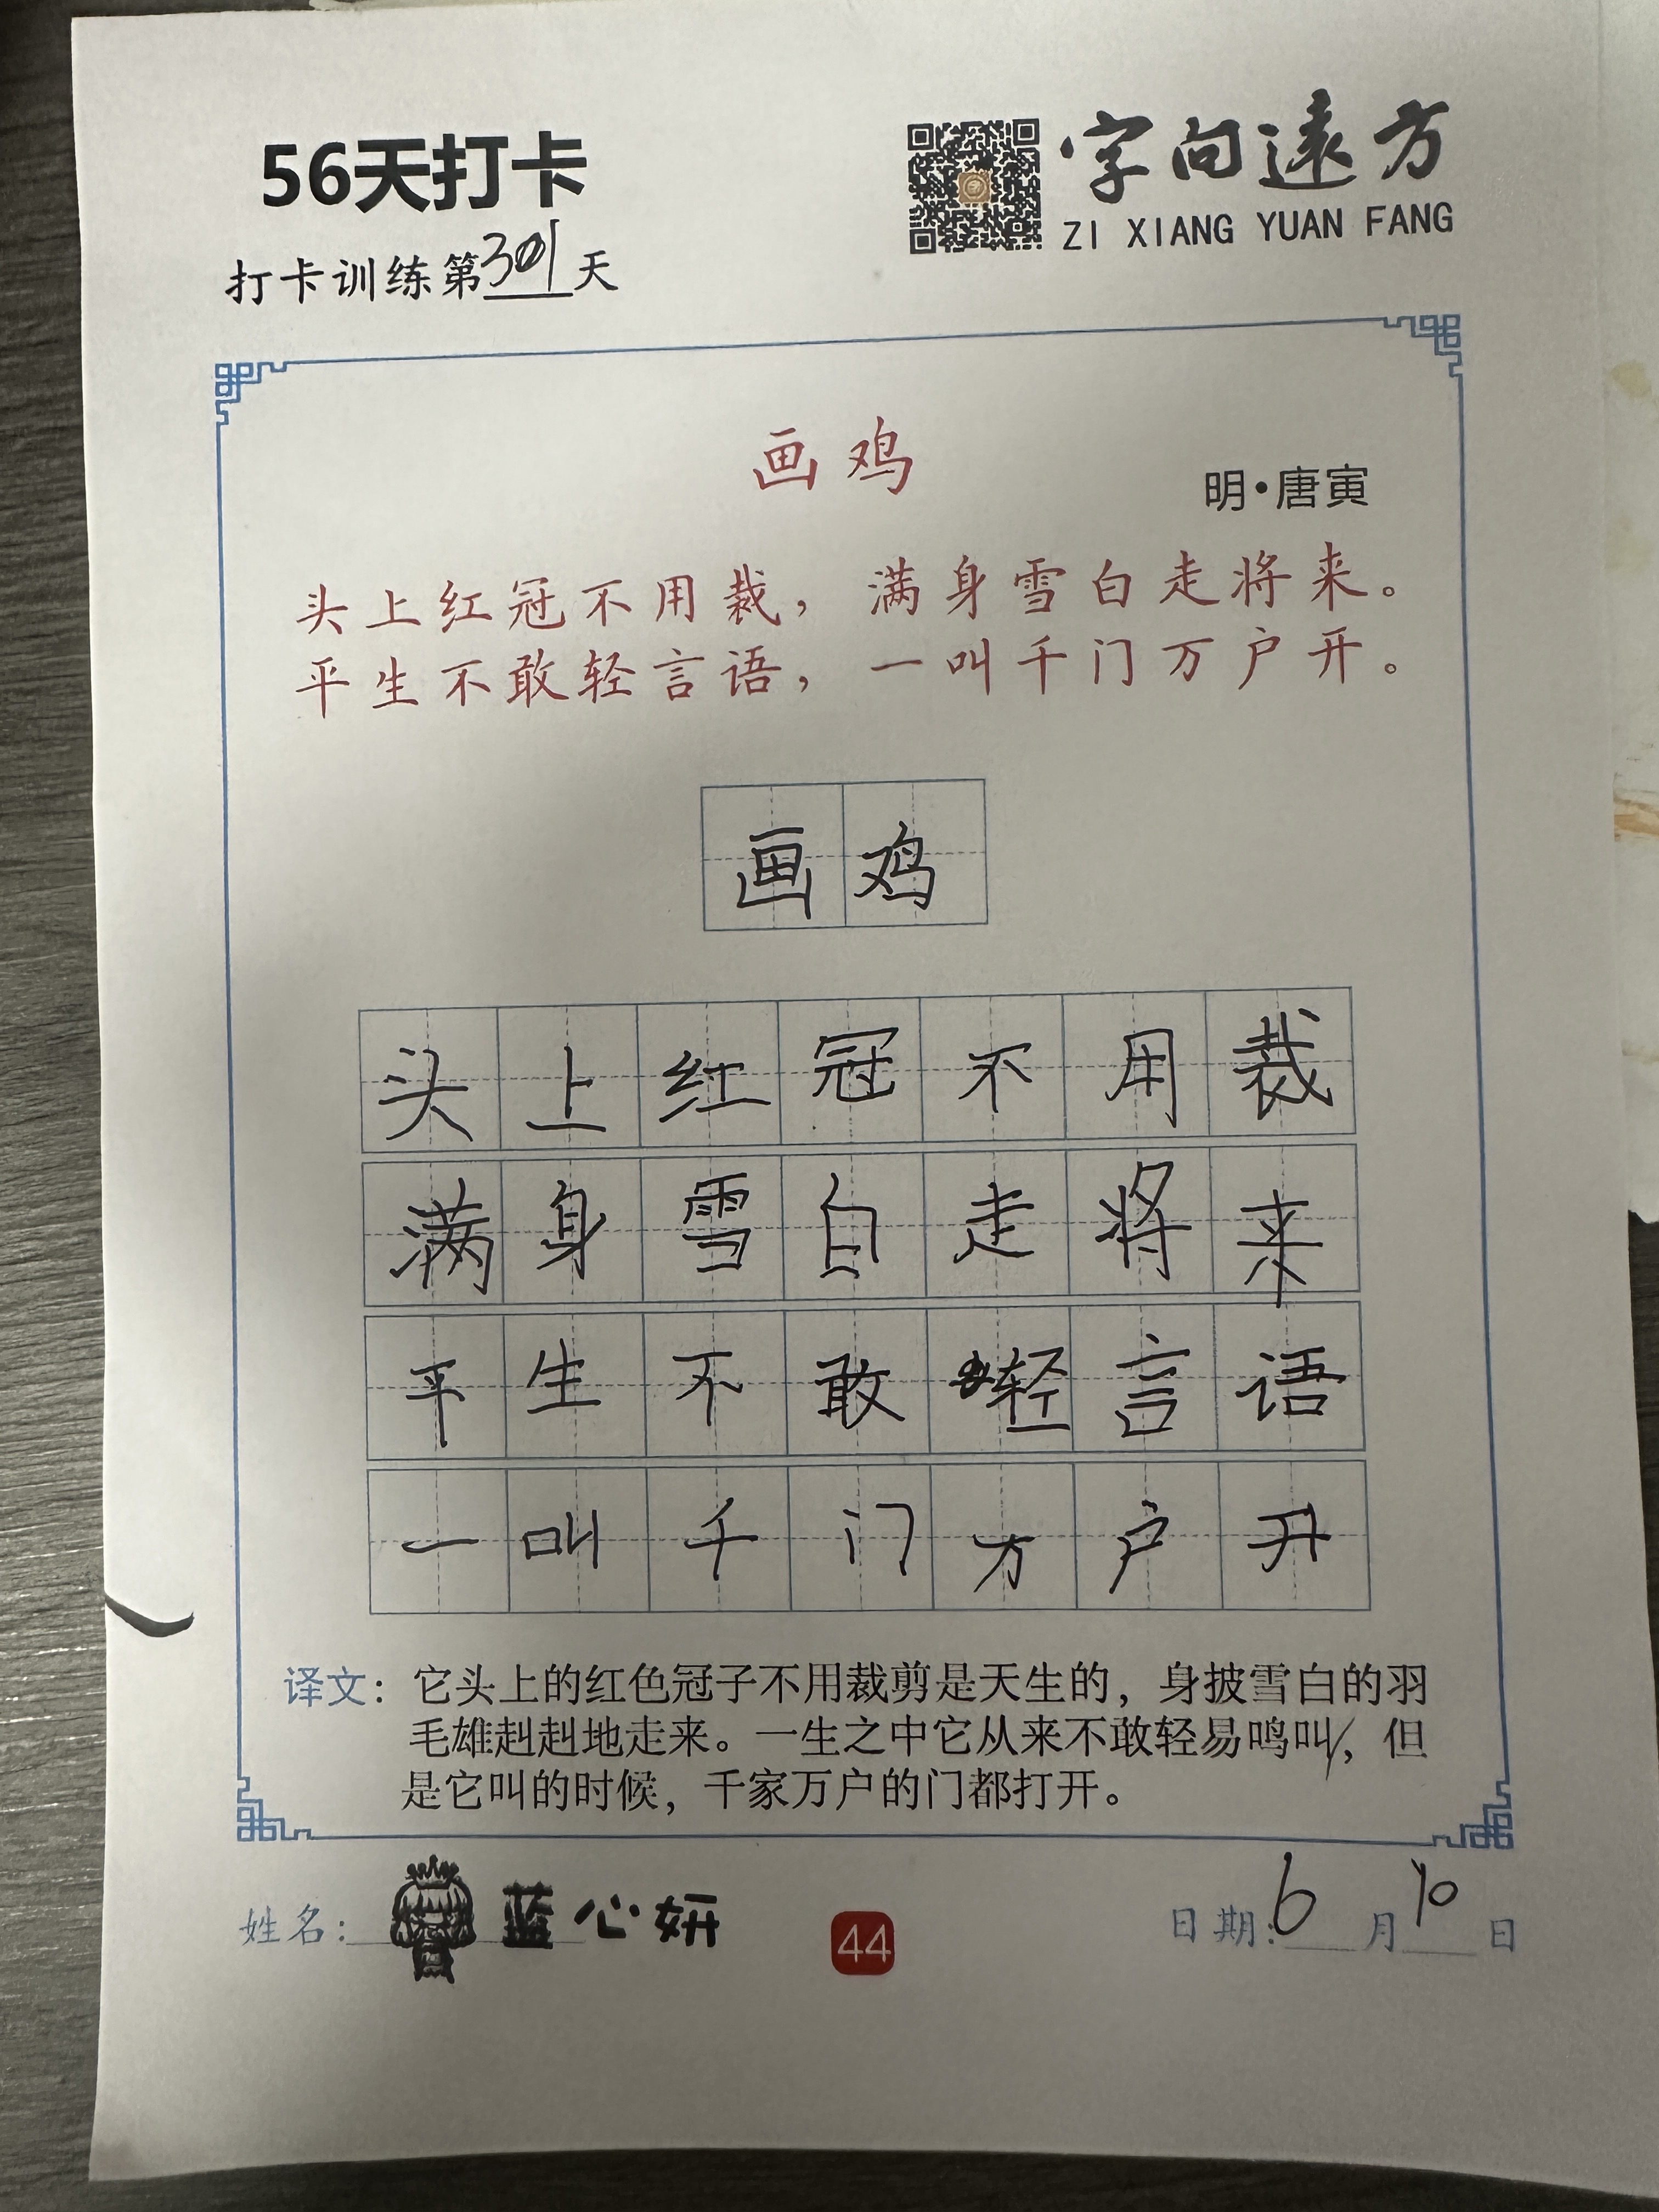 56天打卡
字向遠方
ZI XIANG YUAN FANG
打卡训练第301天
画鸡
明·唐寅
头上红冠不用裁，满身雪白走将来。
平生不敢轻言语，一叫千门万户开。
画鸡
头上红冠不用裁
满身雪白走将来
平生不敢轻言语
一叫千门万户开
译文：它头上的红色冠子不用裁剪是天生的，身披雪白的羽
毛雄赳赳地走来。一生之中它从来不敢轻易鸣叫，但
是它叫的时候，千家万户的门都打开。
姓名：蓝心妍
44
日期：6月10日